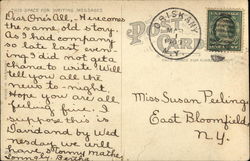 THIS SPACE FOR WRITING MESSAGES
Dear One's All, Here comes
a same old story.
As I had company
so late last even-
ing I did not get a
chance to write. Will
tell you all the
news to-night.
Hope you are all
feeling fine. I
suppose this is
and by Wed-
nesday we will
have
Bertha
ORISKANY
N.Y.
Miss Susan Peeling
East Bloomfield
N.Y.